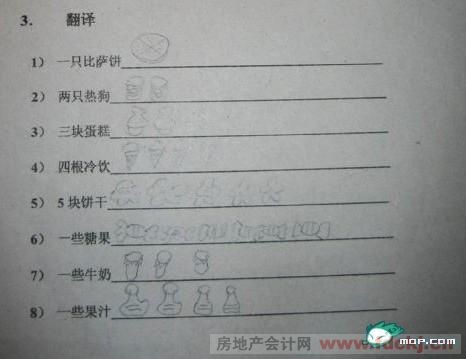 3. 翻译
1) 一只比萨饼
2) 两只热狗
3) 三块蛋糕
4) 四根冷饮
5) 5块饼干
6) 一些糖果
7) 一些牛奶
8) 一些果汁
房地产会计网
MOP.COM